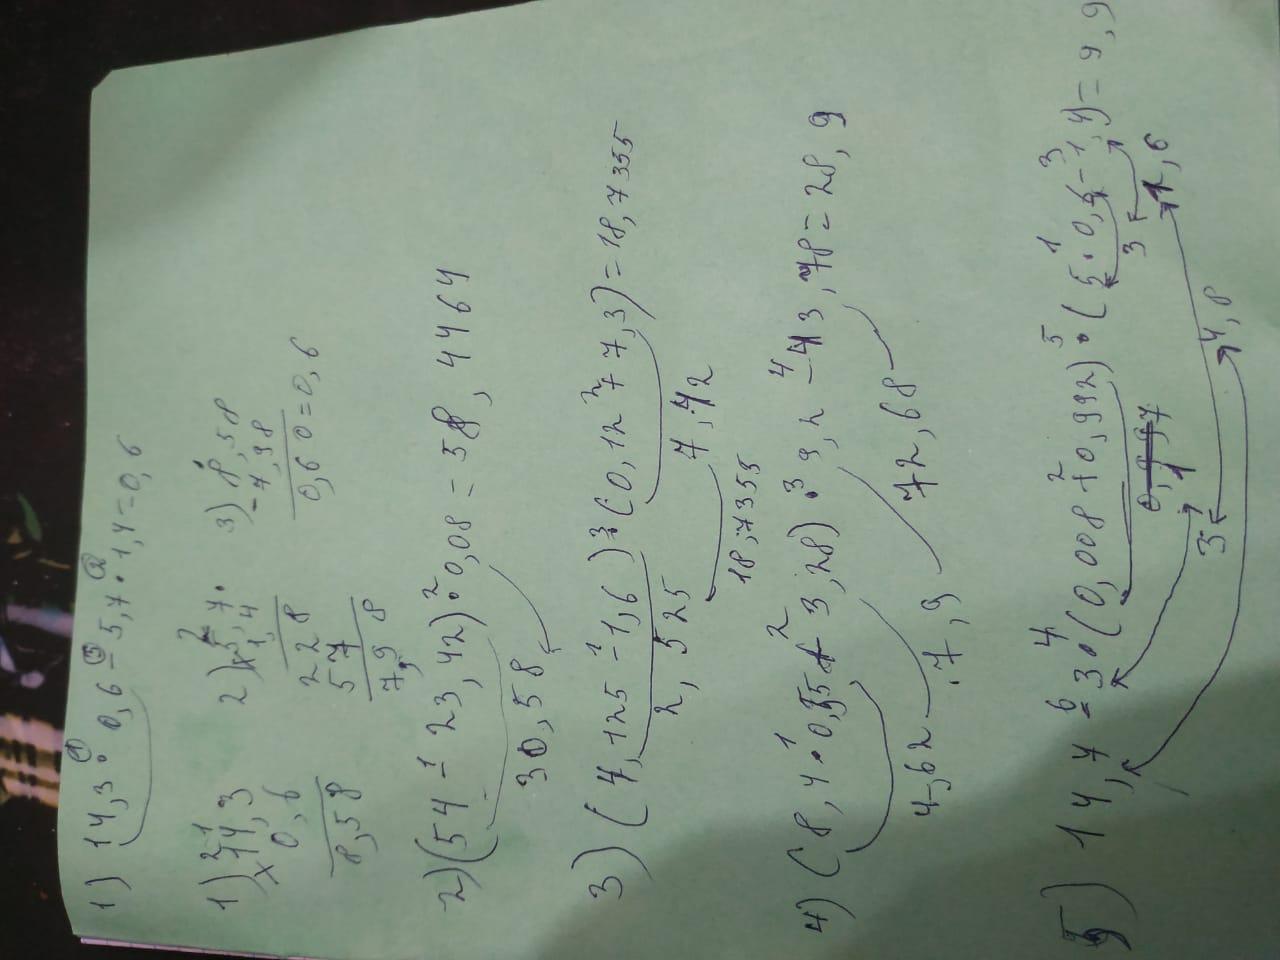 1) 14,3 · 0,6 - 5,7 · 1,4 = 0,6
1) 14,3 2) 5,7 3) 8,58
× 0,6 × 1,4 - 7,98
8,58 228 0,60 = 0,6
57
7,98
2) (54 - 23,42) · 0,08 = 58,4464
30,58
3) (4,125 - 1,6) · (0,12 + 7,3) = 18,7355
2,525 7,42
18,7355
4) (8,4 · 0,55 + 3,28) · 9,2 - 43,78 = 28,9
4,62 7,9 72,68
5) 14,7 - 3 · (0,008 + 0,992) · (5 · 0,6 - 1,4) = 9,9
1 3 1,6
3 4,8